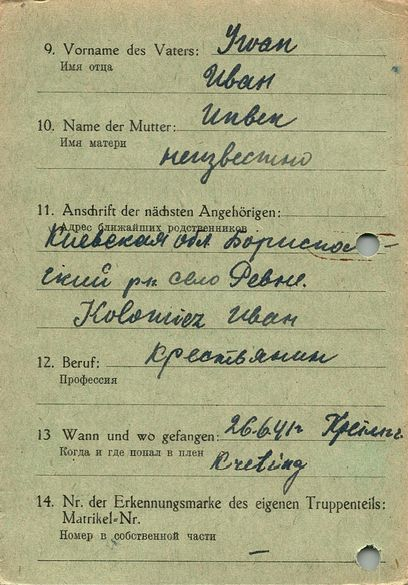 9. Vorname des Vaters: Iwan
Имя отца
Иван
10. Name der Mutter: Unbek
Имя матери
неизвестно
11. Anschrift der nächsten Angehörigen:
Адрес ближайших родственников .
Киевская обл. Бориспо
ский рн. село Ревне.
Kolomiez Иван
12. Beruf: крестьянин
Профессия
13 Wann und wo gefangen: 26.6.41г
Когда и где попал в плен
14. Nr. der Erkennungsmarke des eigenen Truppenteils:
Matrikel-Nr.
Номер в собственной части
–